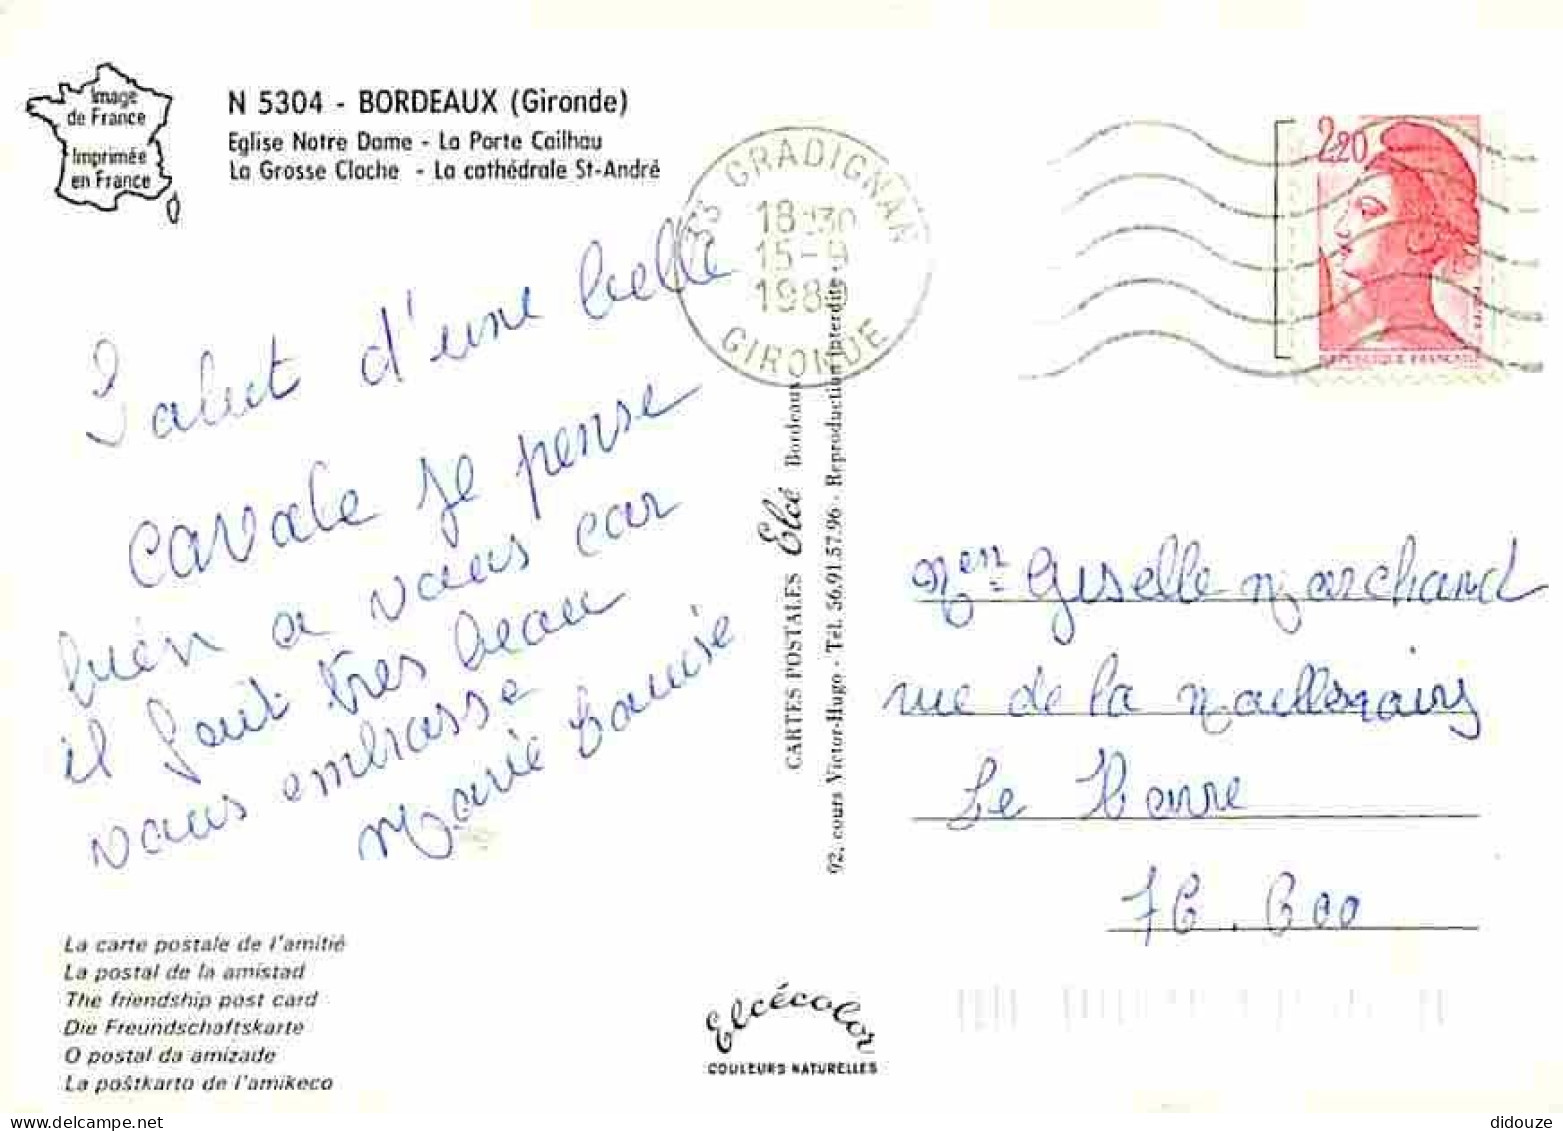 Image
de France
Imprimée
en France
N 5304 - BORDEAUX (Gironde)
Eglise Notre Dame - La Porte Cailhau
La Grosse Cloche - La cathédrale St-André
33 GRADIGNAN
18 H30
15-9
198
GIRONDE
2,20
REPUBLIQUE FRANCAISE
Salut d'une belle
cavale je pense
bien a vous car
il fait tres beau
vous embrasse
Marie Louise
CARTES POSTALES Elcé Bordeaux
92, cours Victor-Hugo - Tél. 56.91.57.96 - Reproduction interdite
Men Giselle Marchand
rue de la Mailleraiy
Le Havre
76.600
La carte postale de l'amitié
La postal de la amistad
The friendship post card
Die Freundschaftskarte
O postal da amizade
La poŝtkarto de l'amikeco
Elcécolor
COULEURS NATURELLES
didouze